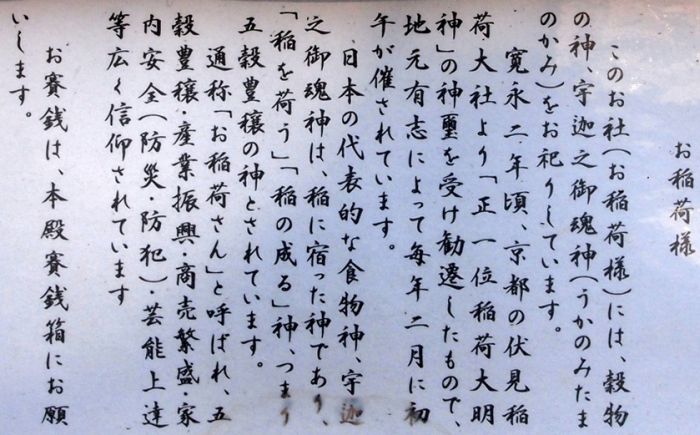 お稲荷様
このお社(お稲荷様)には、穀物
の神、宇迦之御魂神(うかのみたま
のかみ)をお祀りしています。
寛永二年頃、京都の伏見稲
荷大社より「正一位稲荷大明
神」の神璽を受け勧遷したもので、
地元有志によって毎年二月に初
午が催されています。
日本の代表的な食物神、宇迦
之御魂神は、稲に宿った神であり、
「稲を荷う」「稲の成る」神、つまり
五穀豊穣の神とされています。
通称「お稲荷さん」と呼ばれ、五
穀豊穣・産業振興・商売繁盛・家
内安全(防災・防犯)・芸能上達
等広く信仰されています
お賽銭は、本殿賽銭箱にお願
いします。